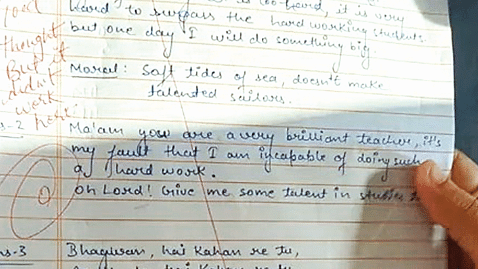 hard to surpass the hard working students
but one day I will do something big
Moral: Soft tides of sea, doesn't make
talented sailors.
thought
But it
didn't
work
here.
s-2
Ma'am you are a very brilliant teacher, it's
my fault that I am incapable of doing such
a hard work.
Oh Lord! Give me some talent in studies
0
ns-3
Bhagwan, hai Kahan re tu,